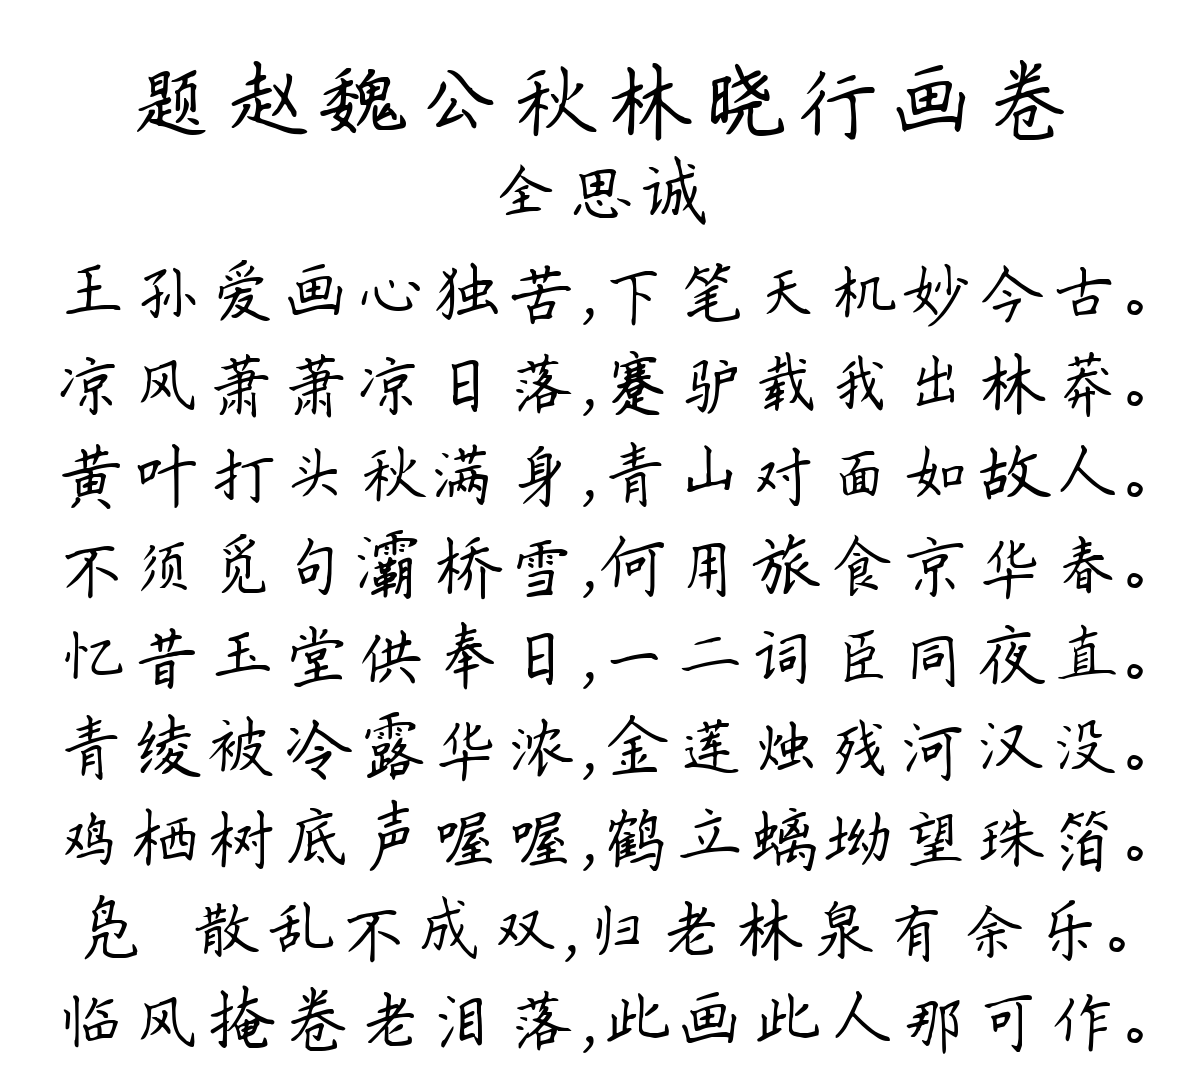 题赵魏公秋林晓行画卷
全思诚
王孙爱画心独苦,下笔天机妙今古。
凉风萧萧凉日落,蹇驴载我出林莽。
黄叶打头秋满身,青山对面如故人。
不须觅句灞桥雪,何用旅食京华春。
忆昔玉堂供奉日,一二词臣同夜直。
青绫被冷露华浓,金莲烛残河汉没。
鸡栖树底声喔喔,鹤立螭坳望珠箔。
凫 散乱不成双,归老林泉有余乐。
临风掩卷老泪落,此画此人那可作。